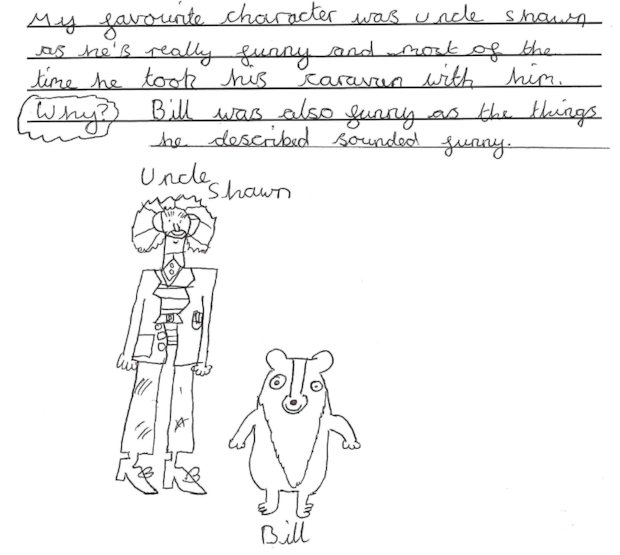 My favourite character was Uncle Shawn
as he's really funny and most of the
time he took his caravan with him.
Why? Bill was also funny as the things
he described sounded funny.
Uncle
Shawn
Bill